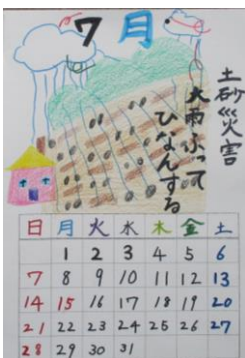 7月
土砂災害
大雨ふって
ひなんする
日 月 火 水 木 金 土
1 2 3 4 5 6
7 8 9 10 11 12 13
14 15 16 17 18 19 20
21 22 23 24 25 26 27
28 29 30 31